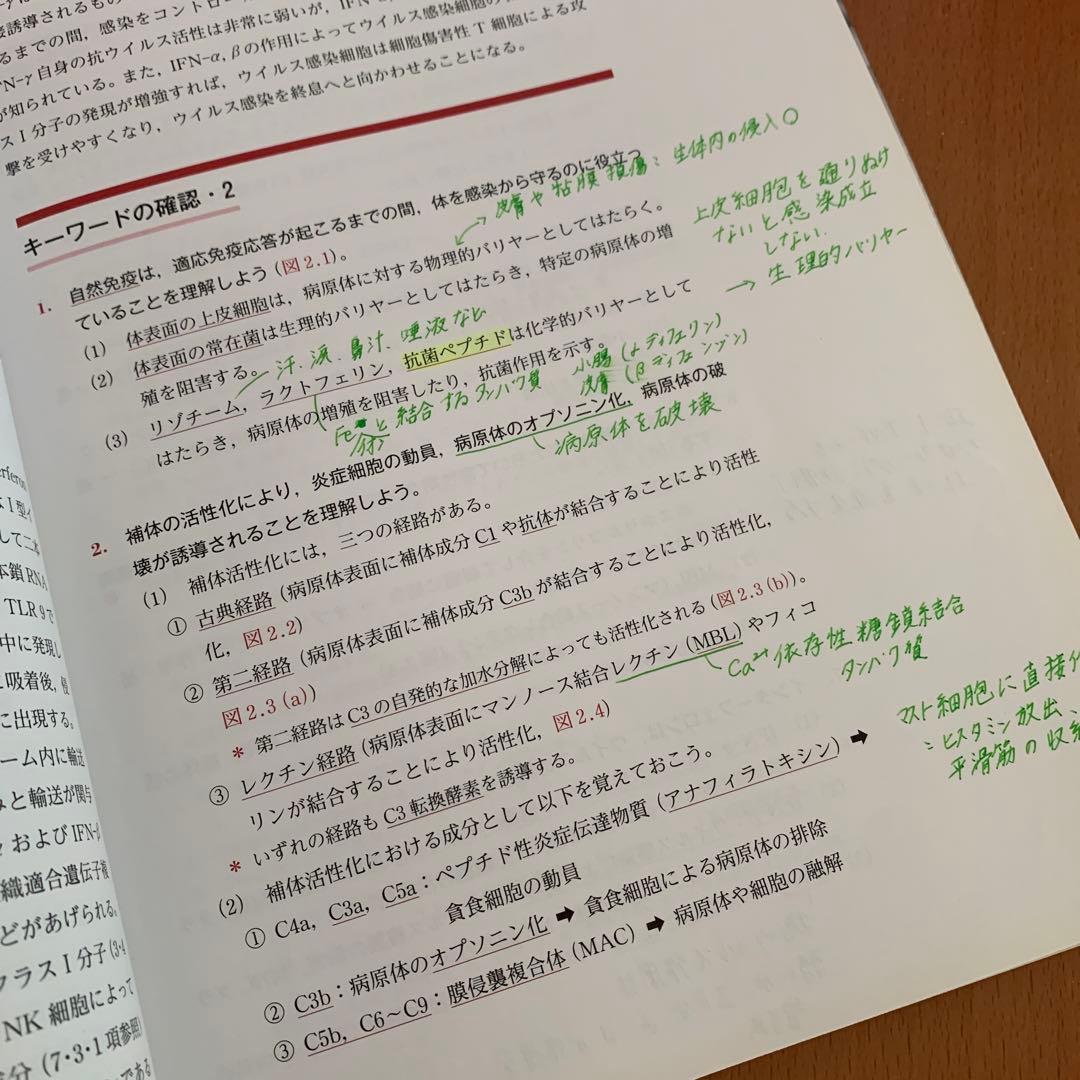 接誘導されるもの
るまでの間，感染をコントロー
N-γ 自身の抗ウイルス活性は非常に弱いが，IFN-
が知られている。また，IFN-α, β の作用によってウイルス感染細胞の
スⅠ分子の発現が増強すれば，ウイルス感染細胞は細胞傷害性 T 細胞による攻
撃を受けやすくなり，ウイルス感染を終息へと向かわせることになる。
キーワードの確認・2
1. 自然免疫は，適応免疫応答が起こるまでの間，体を感染から守るのに役立つ
ていることを理解しよう（図 2.1）。
皮膚や粘膜損傷：生体内の侵入○
(1) 体表面の上皮細胞は，病原体に対する物理的バリヤーとしてはたらく。
上皮細胞を通りぬけ
ないと感染成立
しない
(2) 体表面の常在菌は生理的バリヤーとしてはたらき，特定の病原体の増
殖を阻害する。
→ 生理的バリヤー
汗、涙、鼻汁、唾液など
(3) リゾチーム，ラクトフェリン，抗菌ペプチドは化学的バリヤーとして
はたらき，病原体の増殖を阻害したり，抗菌作用を示す。
小腸（αディフェリン）
皮膚（βディフェンシン）
Fe
と結合するタンパク質
2. 補体の活性化により，炎症細胞の動員，病原体のオプソニン化，病原体の破
壊が誘導されることを理解しよう。
病原体を破壊
(1) 補体活性化には，三つの経路がある。
① 古典経路（病原体表面に補体成分 C1 や抗体が結合することにより活性
化，図 2.2）
② 第二経路（病原体表面に補体成分 C3b が結合することにより活性化，
図 2.3 (a)）
* 第二経路は C3 の自発的な加水分解によっても活性化される（図 2.3 (b)）。
③ レクチン経路（病原体表面にマンノース結合レクチン（MBL）やフィコ
リンが結合することにより活性化，図 2.4）
Ca²⁺依存性糖鎖結合
タンパク質
* いずれの経路も C3 転換酵素を誘導する。
(2) 補体活性化における成分として以下を覚えておこう。
① C4a, C3a, C5a：ペプチド性炎症伝達物質（アナフィラトキシン）➡
貪食細胞の動員
マスト細胞に直接
：ヒスタミン放出、
平滑筋の収
② C3b：病原体のオプソニン化 ➡ 貪食細胞による病原体の排除
③ C5b, C6〜C9：膜侵襲複合体（MAC）➡ 病原体や細胞の融解
して二本
本鎖 RNA
TLR 9 で
中に発現し
吸着後，
に出現する。
ーム内に輸送
みと輸送が関与
および IFN-β
織適合遺伝子複
どがあげられる。
クラスⅠ分子 (3・4
NK 細胞によって
分 (7・3・1 項参照)
である